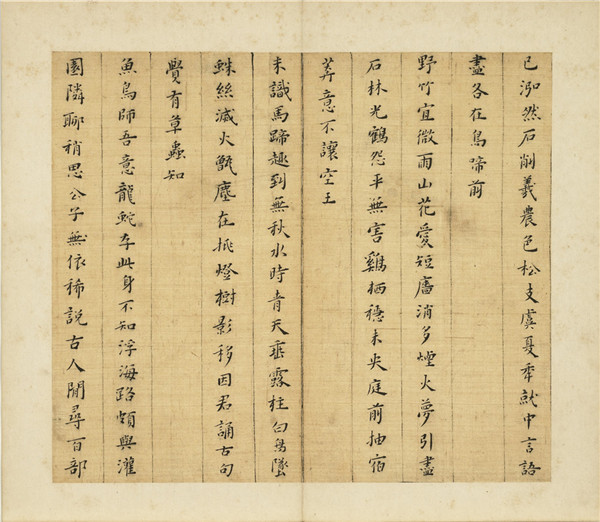 已泓然石削羲農色松支虞夏年就中言語
盡多在鳥啼前
野竹宜微雨山花愛短廬消多煙火夢引盡
石林光鶴怨平無害鷄栖穩未央庭前抽宿
莽意不讓空王
未識馬蹄趣到無秋水時青天垂露柱白鳥墜
蛛絲滅火甑塵在挑燈樹影移因君誦古句
覺有草蟲知
魚鳥師吾意龍蛇存此身不知浮海路頗與灌
園隣聊稍思公子無依稀說古人閒尋百部